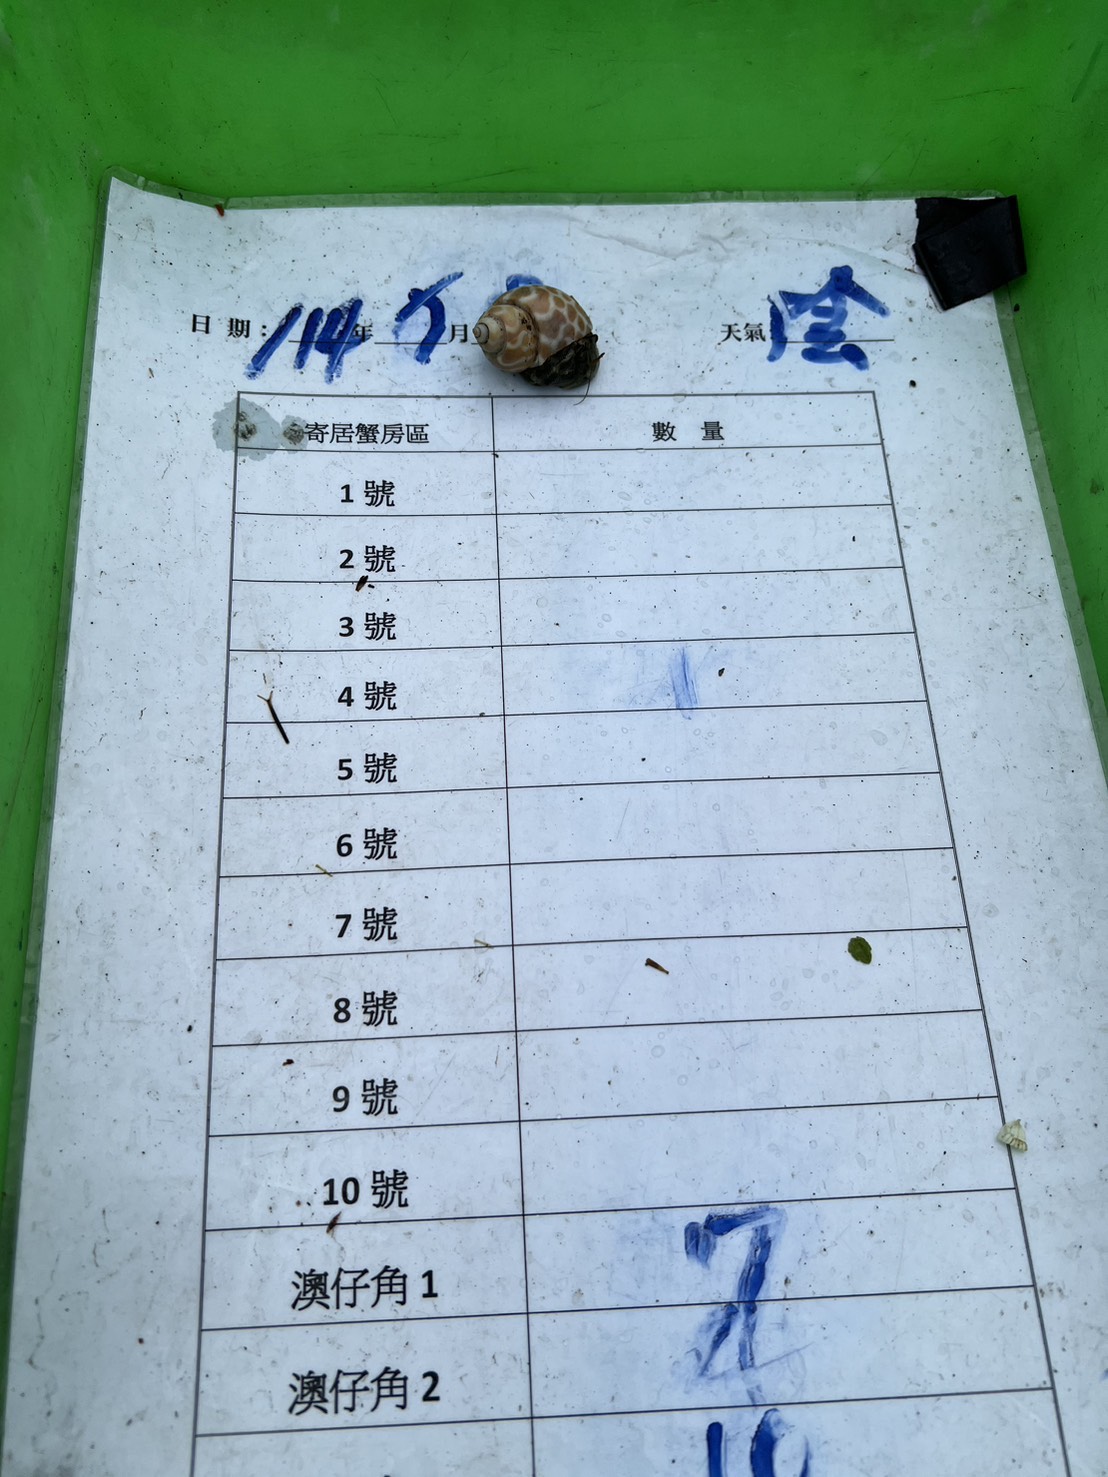 日期：114年 5月 天氣 陰
寄居蟹房區 數量
1號
2號
3號
4號 1
5號
6號
7號
8號
9號
10號
澳仔角1 7
澳仔角2
10